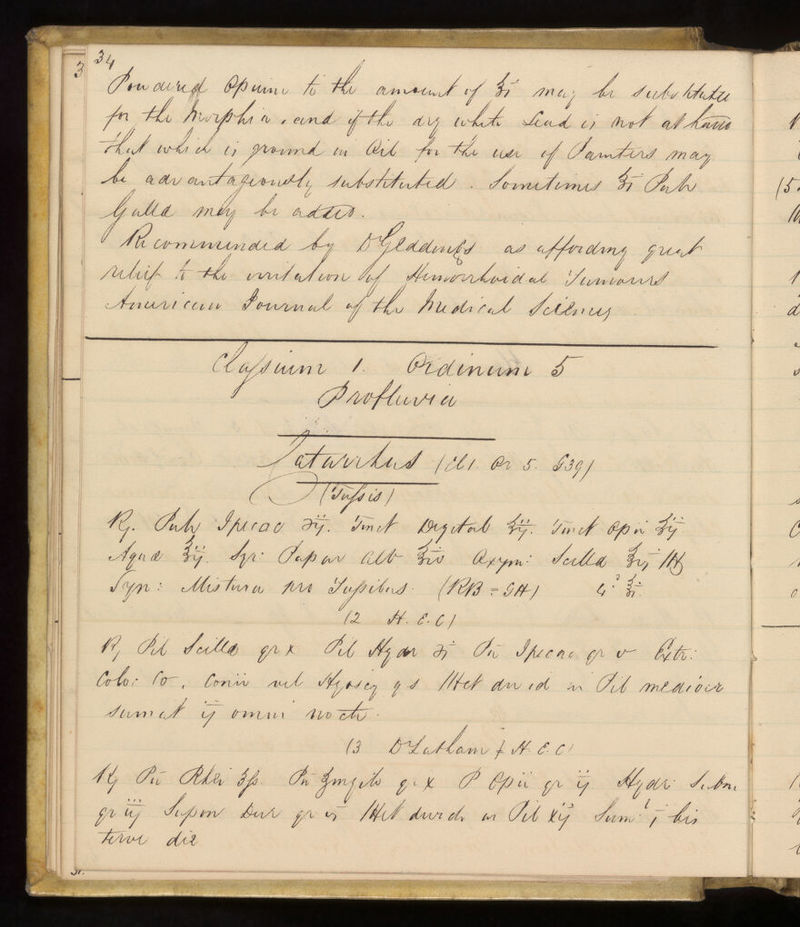 34
Powdered Opium to the amount of ʒi may be substituted
for the Morphia, and if the dry white Lead is not at hand
that which is ground in Oil for the use of Painters may
be advantageously substituted. Sometimes ʒi Pulv
Galla may be added.
Recommended by Dr Geddings as affording great
relief to the irritation of Hemorrhoidal Tumours
American Journal of the Medical Sciences
Classium 1. Ordinum 5
Profluvia
Catarrhus (Cl 1. Or 5. G39)
(Tussis)
Rj. Pulv Ipecac ʒij. Tinct Digital ʒij. Tinct Opii ʒij
Aquæ ʒij Syr: Papav alb ʒiv Oxym: Scilla
Syn: Mistura pro Tussibus. (RB = GH)
(2 H. E. C)
Rj Pil Scilla gr x Pil Hydr ʒi Pu Ipecac gr v Extr:
Colo: Co. Conii vel Hyoscy qs Mct divid in Pil mediocr
sumat ij omni nocte.
(3 Dr Latham & H. E. C)
Rj Pu Rhei ʒss Pu Zingib gr x P Opii gr ij Hydr: Subm
gr iij Sapon Dur gr vi Mct divid in Pil xij Sum i bis
terve die